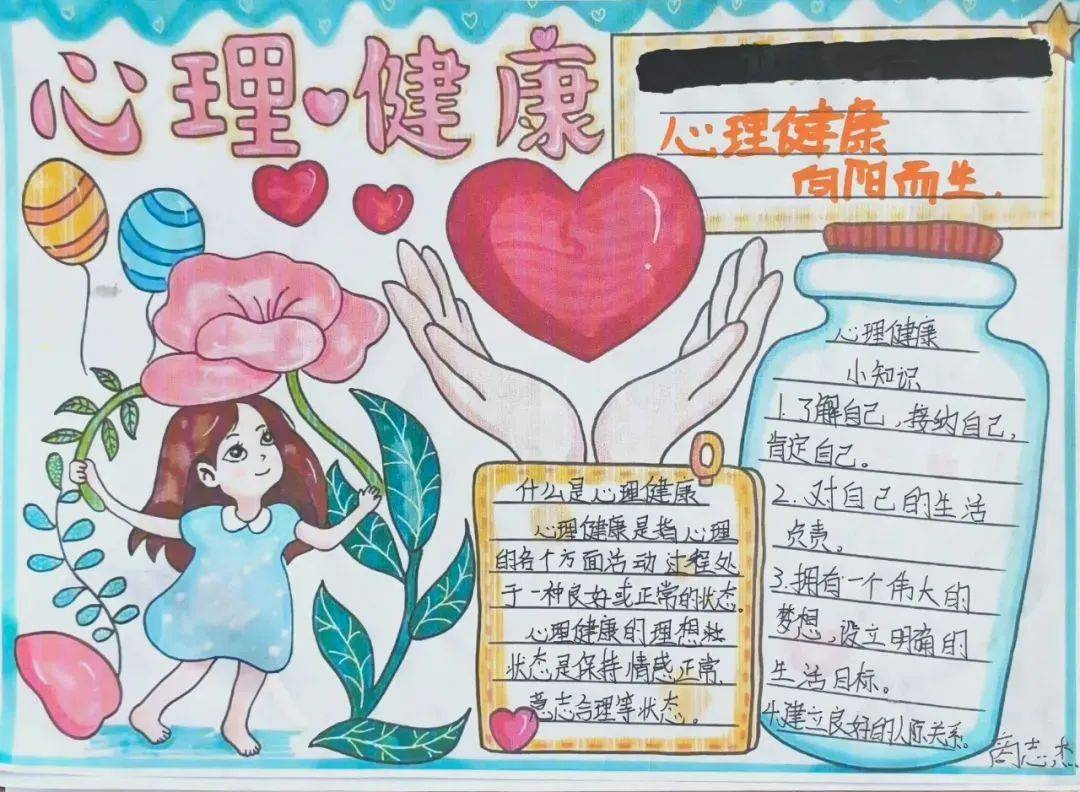 心理健康
心理健康
向阳而生.
什么是心理健康
心理健康是指心理
的各个方面活动过程处
于一种良好或正常的状态。
心理健康的理想
状态是保持情感正常.
意志合理等状态。
心理健康
小知识
1.了解自己,接纳自己,
肯定自己。
2.对自己的生活
负责。
3.拥有一个伟大的
梦想,设立明确的
生活目标。
4.建立良好的人际关系。
商志杰